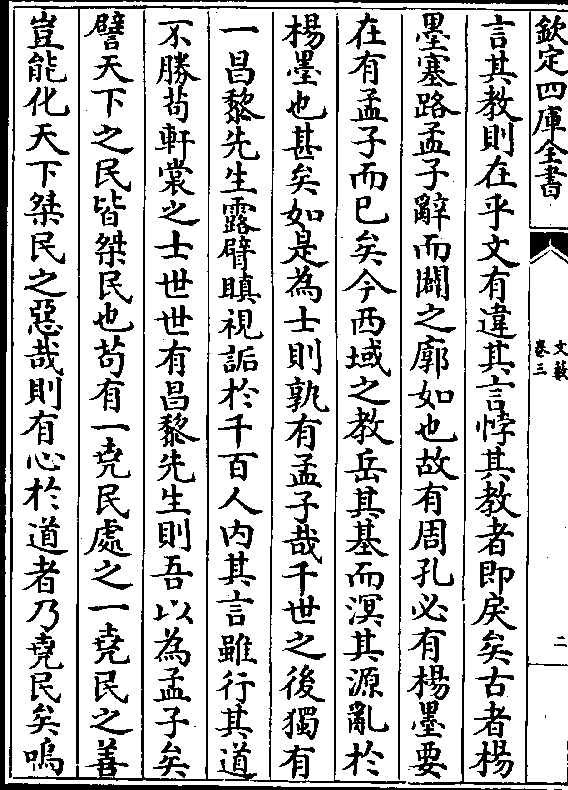 欽定四庫全書
文藪
卷三
二
言其教則在乎文有違其言悖其教者即戾矣古者楊
墨塞路孟子辭而闢之廓如也故有周孔必有楊墨要
在有孟子而已矣今西域之教岳其基而溟其源亂於
楊墨也甚矣如是為士則孰有孟子哉千世之後獨有
一昌黎先生露臂瞋視詬於千百人內其言雖行其道
不勝苟軒裳之士世世有昌黎先生則吾以為孟子矣
譬天下之民皆桀民也苟有一堯民處之一堯民之善
豈能化天下桀民之惡哉則有心於道者乃堯民矣嗚